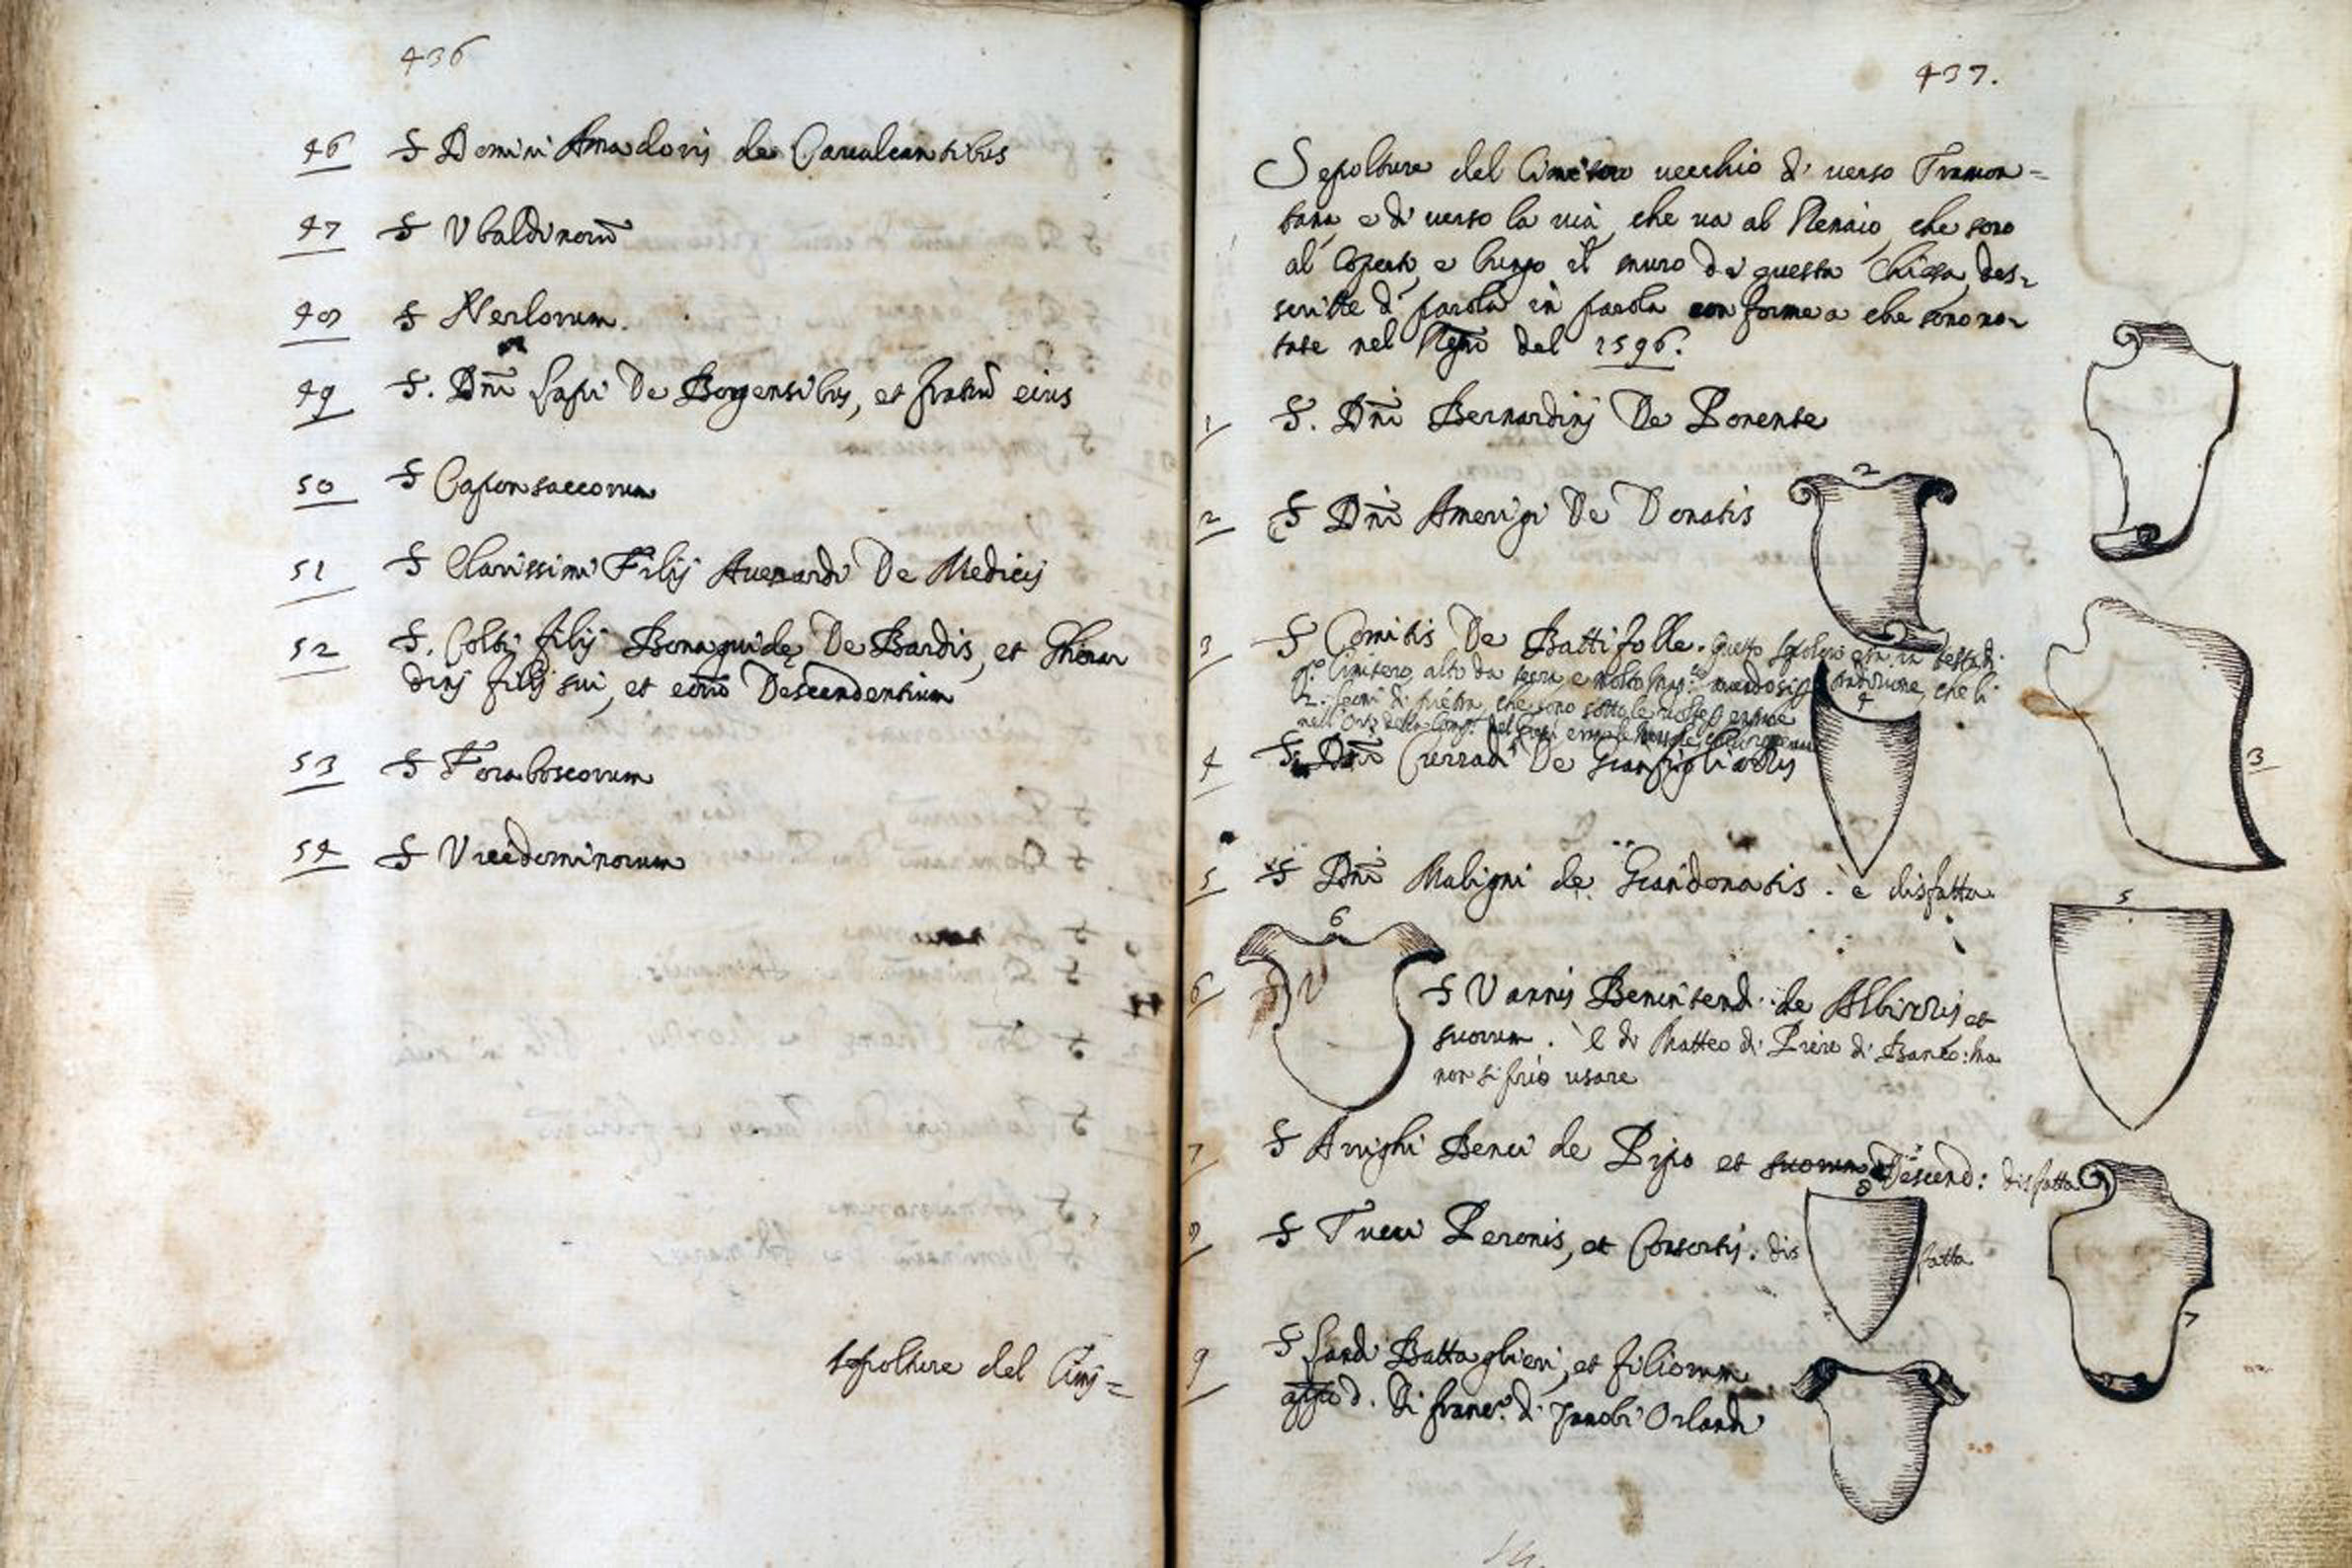 436
46 S Domini Amadoris de Caualcantibus
47 S Vbaldinorũ
48 S Nerlorum.
49 S. Dñi Lapi De Borgensibus, et fratrũ eius
50 S Caponsaccorum
51 S Clarissimi Filij Auerardi De Medicis
52 S. Colti filij Bonaguidę De Bardis, et Gherar
dinj filij sui, et eorũ Descendentium
53 S Foraboscorum
54 S Vicedominorum
sepolture del Cimj=
437.
Sepolture del Cimitero uecchio di uerso Tramon=
tana e di uerso la uia, che ua al Renaio, che sono
al coperto, e lungo il muro di questa Chiesa, des=
scritte di parola in parola conforme a che sono no=
tate nel Regrõ del 1596.
1 S. Dñi Bernardinj De Ponente
2 S Dñi Amerigi De Donatis
2
3 S Comitis De Battifolle. Questo sepolcro era in testa di
qº. Cimitero, alto da terra e molto che li
2. Leoni di pietra, che sono sotto le
nell'Orto della Comp.
4
4 S. Dñi Curradi De Gianfigliazis
3
5 S Dñi Maligni de Giandonatis. è disfatta
5
6
6 S Vannis Benintend. de Albizzis et
suorum. È di Matteo di Piero di Banco: ma
non si può usare
7 S Arrighi Benci de Pipo et suorum Descend: disfatta
8
8 S Tucci Peronis, et Consortij. dis fatta
7
9 S Landi Battaglieri, et filiorum
di Franc.º di Zanobi Orlandi